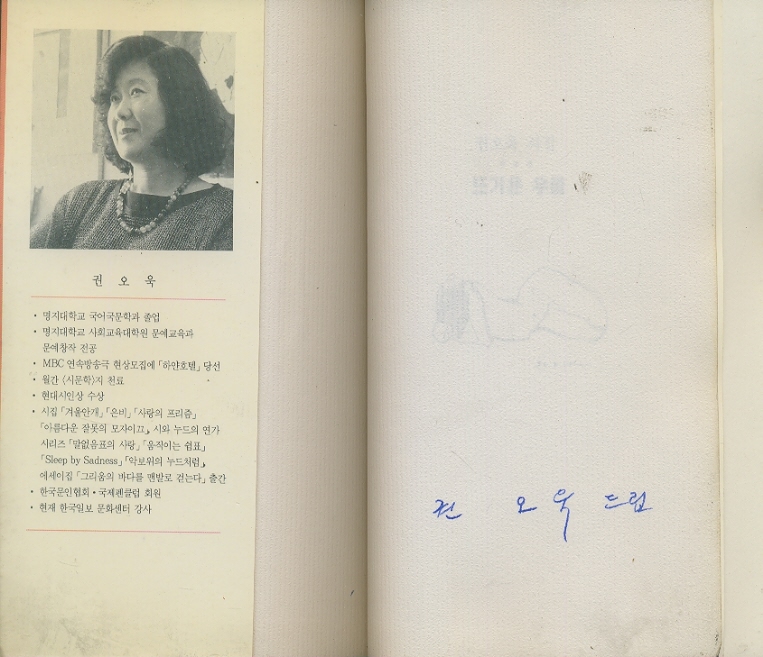 권 오 욱
• 명지대학교 국어국문학과 졸업
• 명지대학교 사회교육대학원 문예교육과
문예창작 전공
• MBC 연속방송극 현상모집에 「하얀호텔」 당선
• 월간 〈시문학〉지 천료
• 현대시인상 수상
• 시집 「겨울안개」 「은비」 「사랑의 프리즘」
「아름다운 잘못의 모자이끄」, 시와 누드의 연가
시리즈 「말없음표의 사랑」 「움직이는 쉼표」
「Sleep by Sadness」 「악보위의 누드처럼」,
에세이집 「그리움의 바다를 맨발로 걷는다」 출간
• 한국문인협회 • 국제펜클럽 회원
• 현재 한국일보 문화센터 강사
권 오 욱 드림